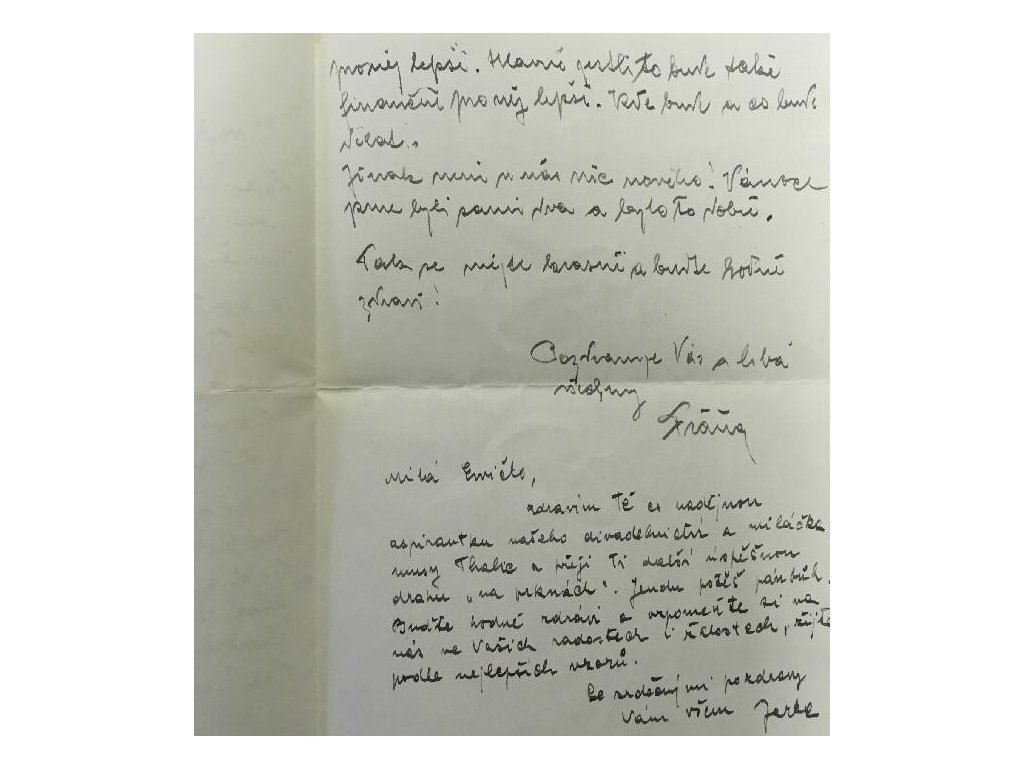 pro něj lepší. Hlavně jestli to bude také
finančně pro něj lepší. Kde bude a co bude
dělat.
Jinak není u nás nic nového! Vánoce
jsme byli sami dva a bylo to dobré.
Tak se mějte krásně a buďte hodně
zdraví!
Pozdravuje Vás a líbá
všechny
Fráňa
Milá Emičko,
zdravím Tě co nadějnou
aspirantku našeho divadelnictví a miláčka
musy Thalie a přeji Ti další úspěšnou
dráhu „na prknách". Jendu potěš pánbůh.
Buďte hodně zdrávi a vzpomeňte si na
nás ve Vašich radostech i žalostech, žijte
podle nejlepších vzorů.
Se srdečnými pozdravy
Vám všem